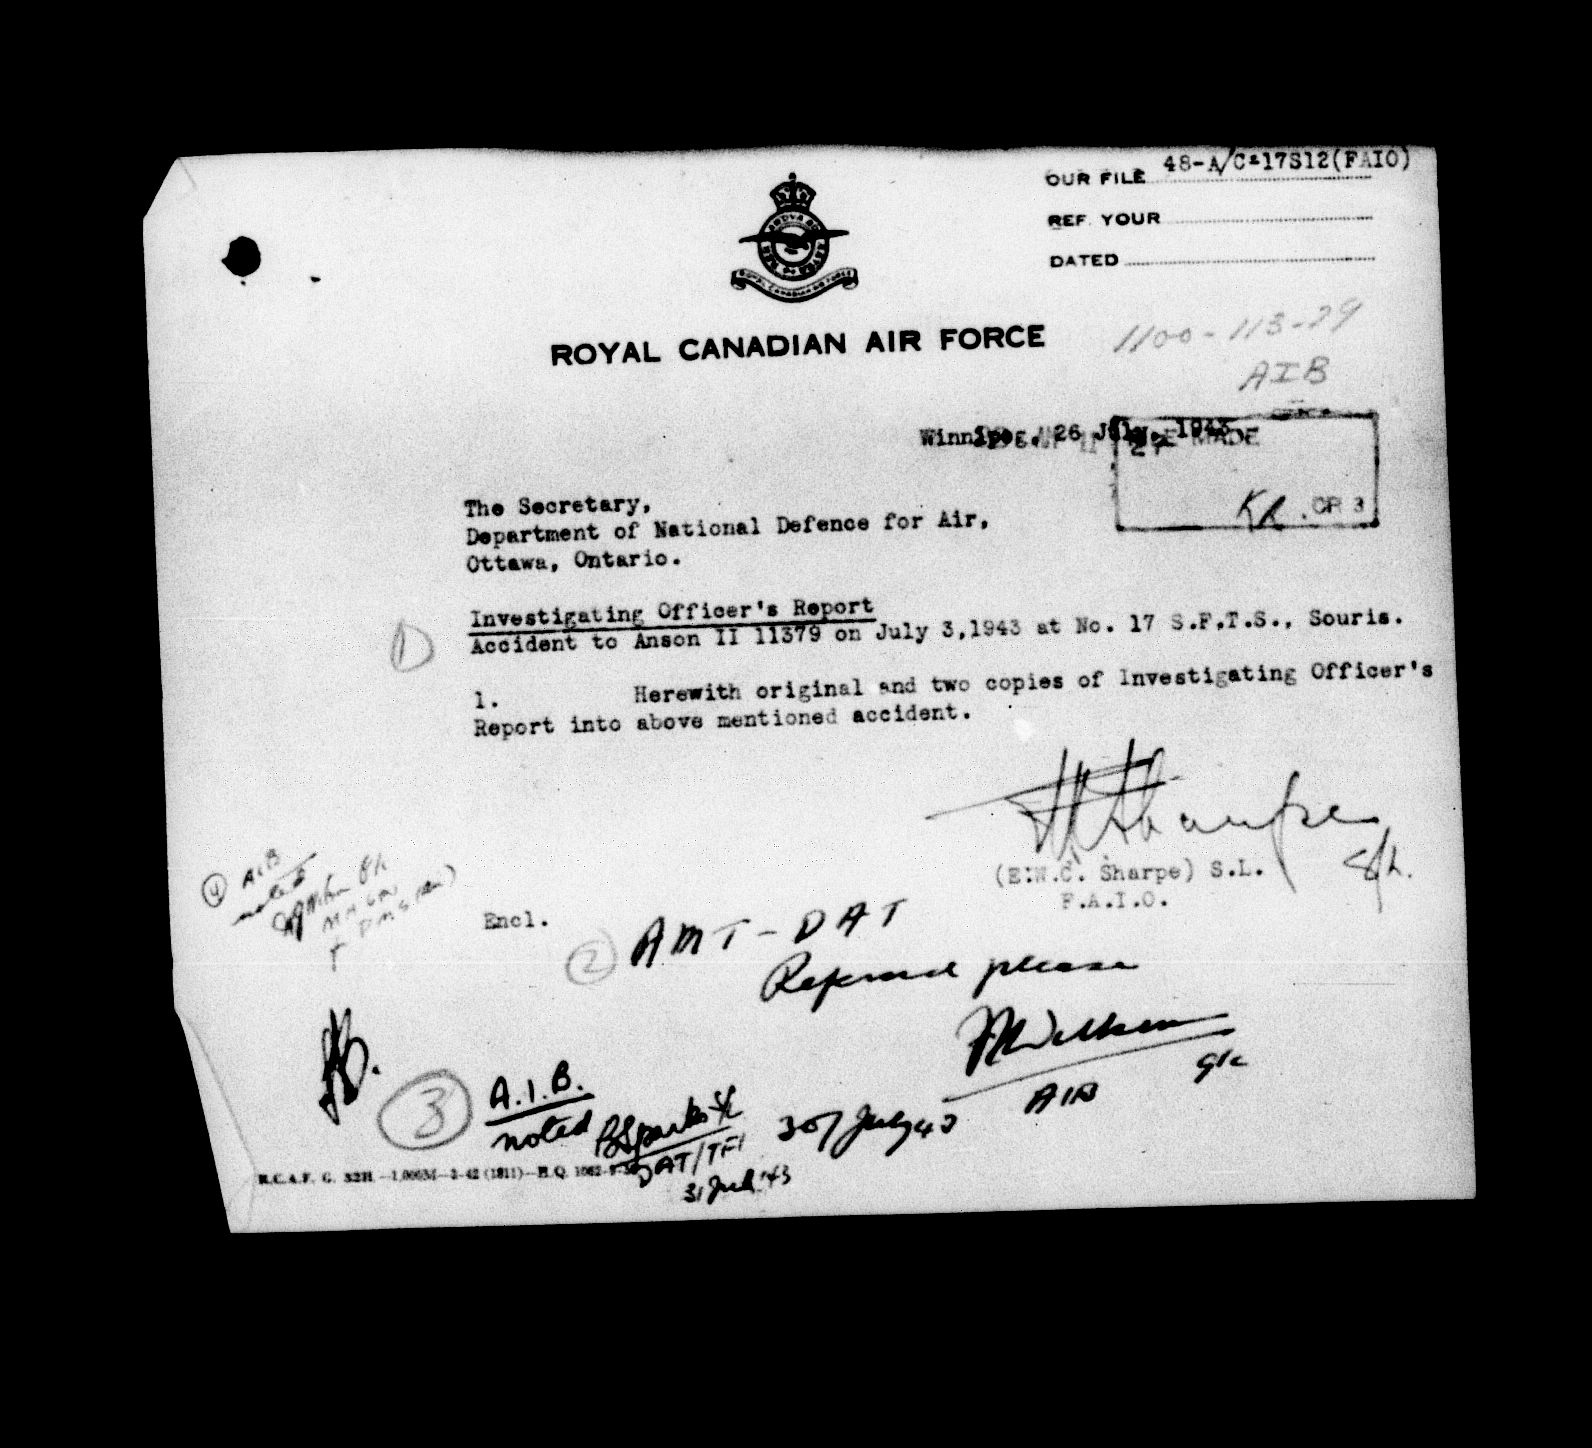 48-A/C-17S12(FAIO)
OUR FILE
REF. YOUR
DATED
ROYAL CANADIAN AIR FORCE
1100-113-79
AIB
Winnipeg, 26 July, 1943
MADE
27
CR 3
The Secretary,
Department of National Defence for Air,
Ottawa, Ontario.
1
Investigating Officer's Report
Accident to Anson II 11379 on July 3,1943 at No. 17 S.F.T.S., Souris.
1. Herewith original and two copies of Investigating Officer's
Report into above mentioned accident.
Sharpe S/L.
(E.W.C. Sharpe) S.L.
F.A.I.O.
Encl.
4 AIB
noted
2 AMT-DAT
Referred please
AIB
30/July 43
3 A.I.B.
noted
BSparks S/L
DAT/TF1
31 Jul '43
R.C.A.F. G. 32H.—1,000M—2-42 (1811)—H.Q. 1062-